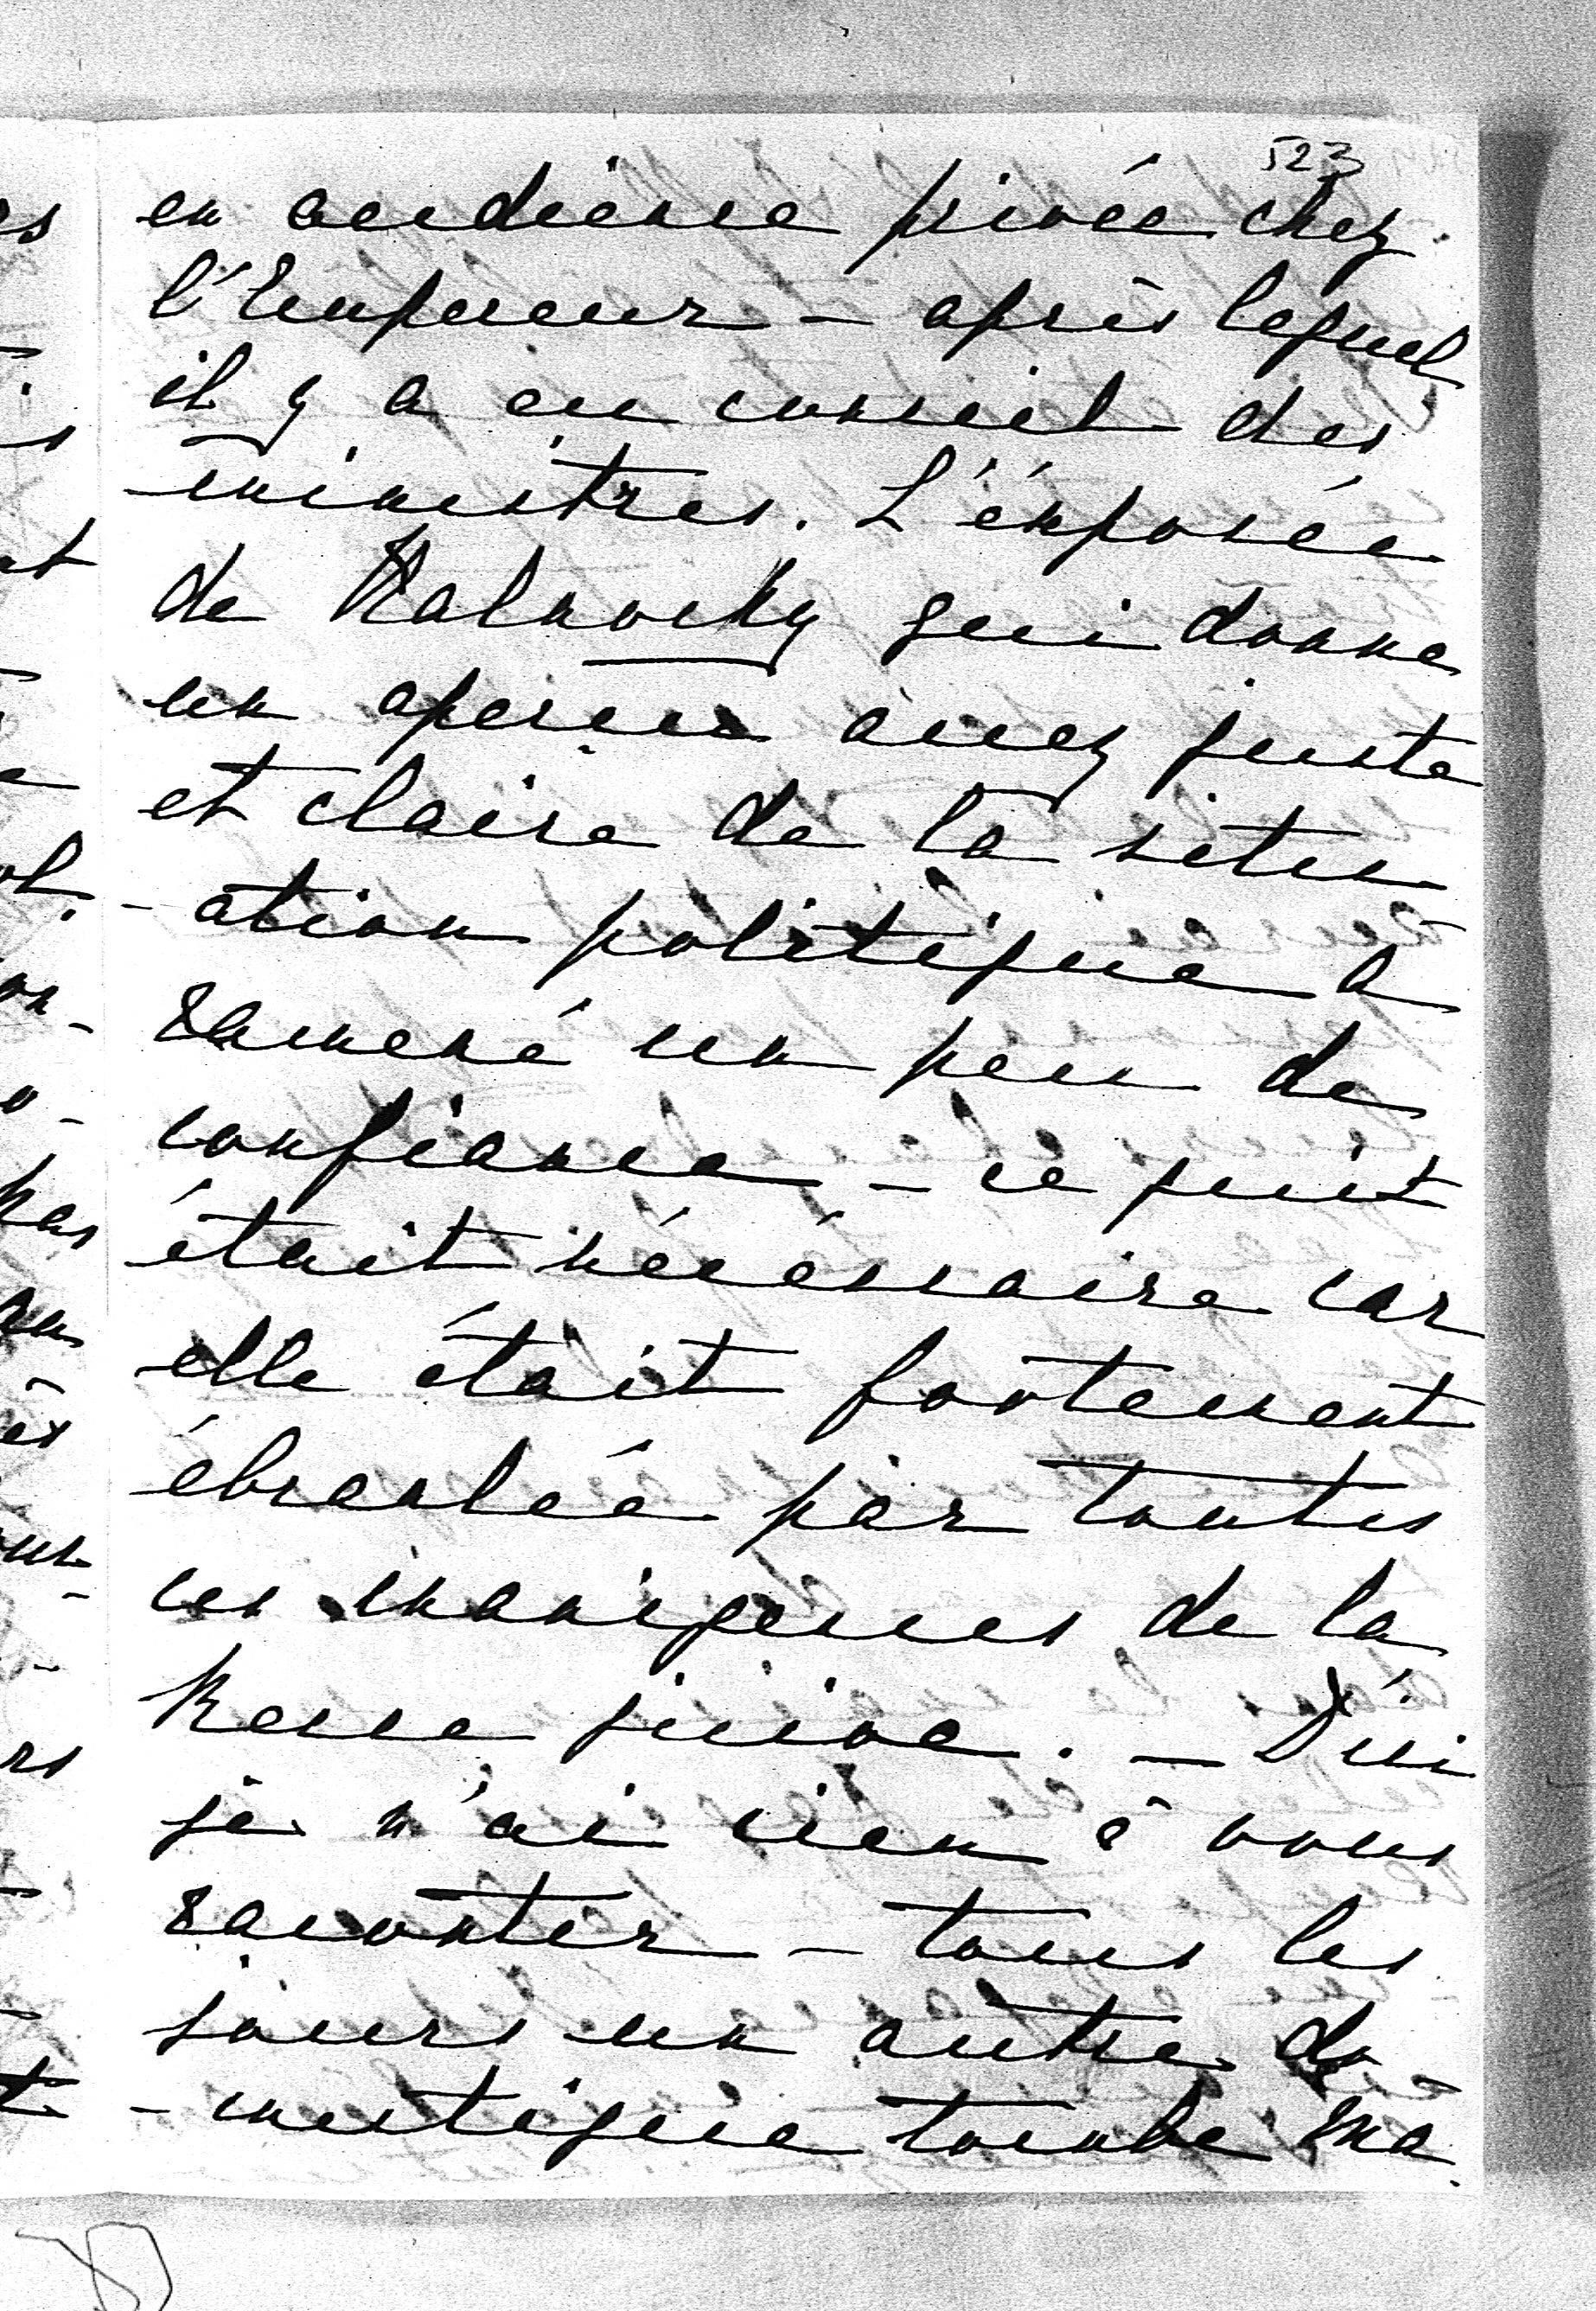 523
en audience privée chez
l'Empereur – après lequel
il y a eu conseil des
ministres. L'éxposée
de Kalnocky qui donne
un aperçu assez juste
et claire de la situ
-ation politique a
ramené un peu de
confiance – ce qui
était nécéssaire car
elle était fortement
ébranlée par toutes
ces manigeures de la
Presse juive. – D'ici
je n'ai rien à vous
raconter – tous les
jours un autre do
-mestique tombe ma